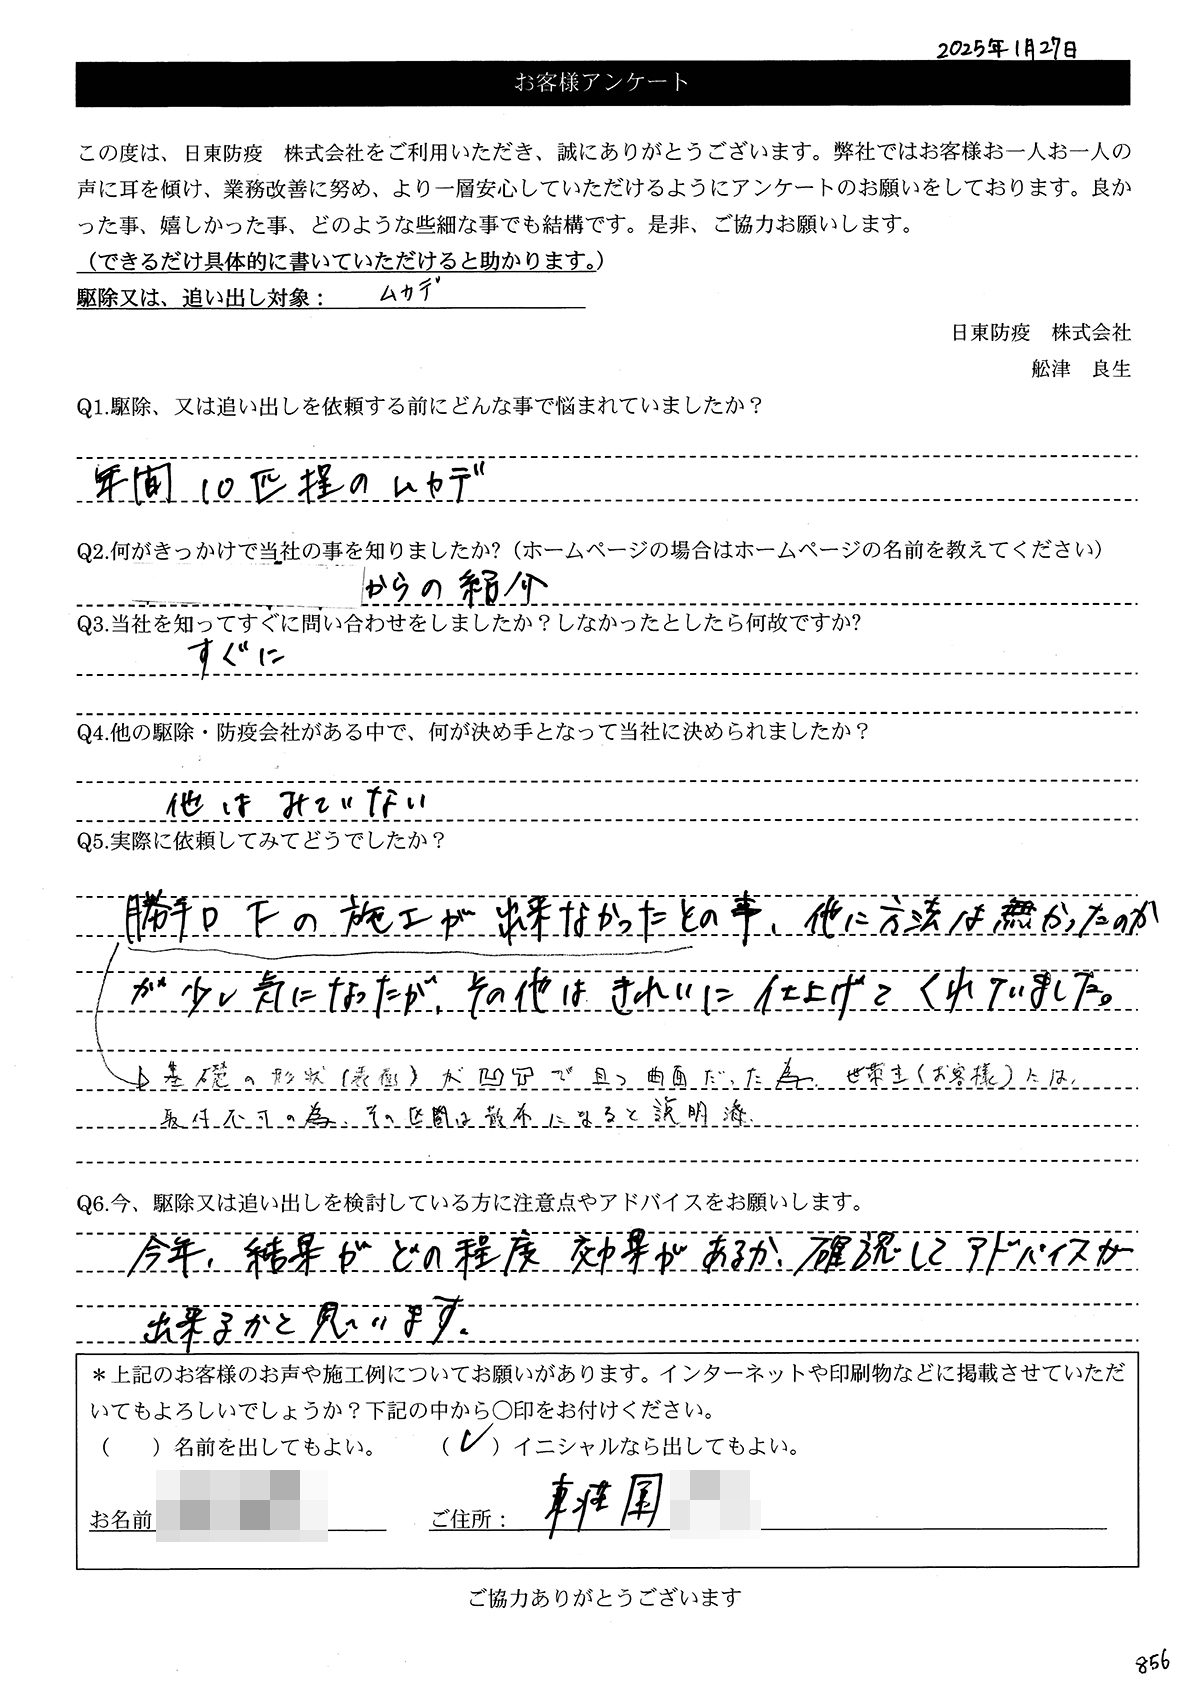 2025年1月27日
お客様アンケート
この度は、日東防疫　株式会社をご利用いただき、誠にありがとうございます。弊社ではお客様お一人お一人の
声に耳を傾け、業務改善に努め、より一層安心していただけるようにアンケートのお願いをしております。良か
った事、嬉しかった事、どのような些細な事でも結構です。是非、ご協力お願いします。
（できるだけ具体的に書いていただけると助かります。）
駆除又は、追い出し対象：　ムカデ
日東防疫　株式会社
舩津　良生
Q1.駆除、又は追い出しを依頼する前にどんな事で悩まれていましたか？
年間10匹程のムカデ
Q2.何がきっかけで当社の事を知りましたか?（ホームページの場合はホームページの名前を教えてください）
からの紹介
Q3.当社を知ってすぐに問い合わせをしましたか？しなかったとしたら何故ですか?
すぐに
Q4.他の駆除・防疫会社がある中で、何が決め手となって当社に決められましたか？
他はみていない
Q5.実際に依頼してみてどうでしたか？
勝手口下の施工が出来なかったとの事、他に方法は無かったのか
が少し気になったが、その他はきれいに仕上げてくれていました。
基礎の形状(表面)が凹凸で且つ曲面だった為、世帯主(お客様)には、
取付不可の為、その区間は散布になると説明済.
Q6.今、駆除又は追い出しを検討している方に注意点やアドバイスをお願いします。
今年、結果がどの程度効果があるか、確認してアドバイスが
出来るかと思います。
＊上記のお客様のお声や施工例についてお願いがあります。インターネットや印刷物などに掲載させていただ
いてもよろしいでしょうか？下記の中から○印をお付けください。
（　）名前を出してもよい。　（✓）イニシャルなら出してもよい。
お名前　ご住所：　東荘園
ご協力ありがとうございます
856